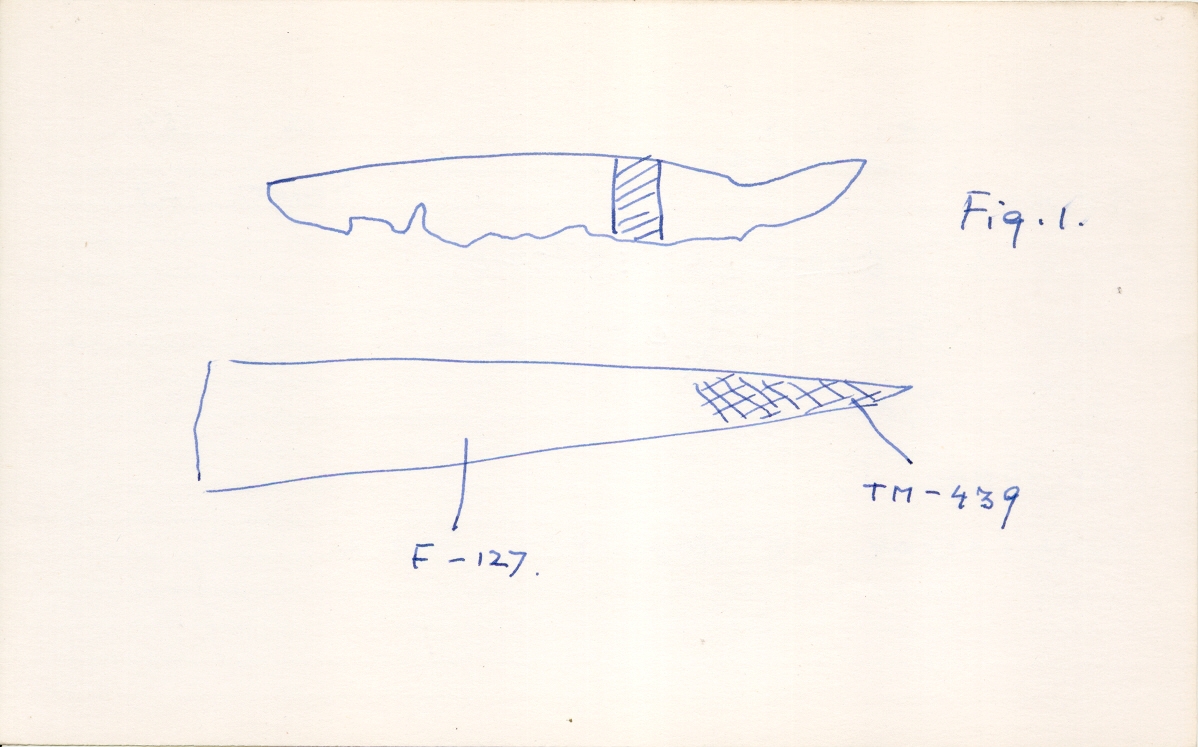 Fig. 1.
TM-439
F-127.